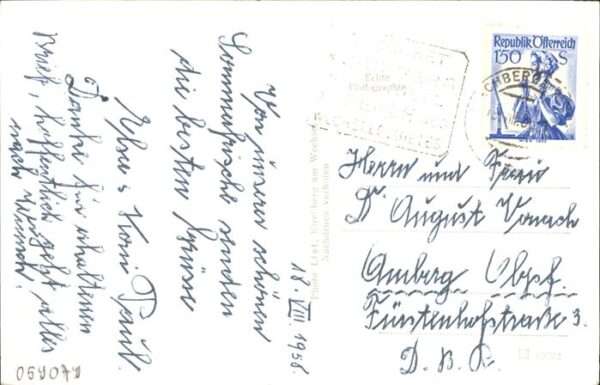 18. VIII. 1958.
Von unserer schönen
Sommerfrische senden
die besten Grüsse
Paul.
Danke für erhaltenen
Brief, hoffentlich geht alles
nach Wunsch!
Republik Österreich
1.50 S
CHBERG
Echte
Photographie
Herrn und Frau
Dr. August Vonach
Amberg Obpf.
Fürstenhofstrasse 3.
D. B. R.
Photo Kirchberg am Wechsel
Nachdruck verboten
059071